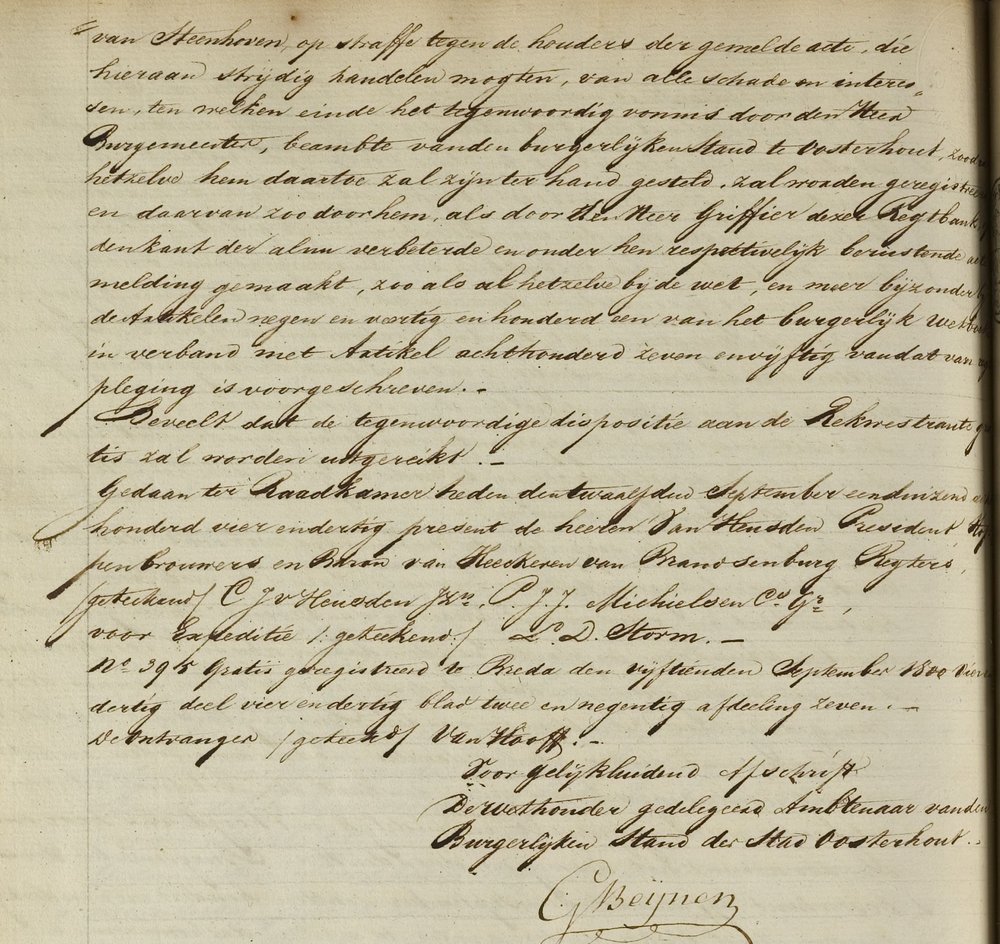 van Steenhoven, op straffe tegen de houders der gemelde acte, die
hieraan strijdig handelen mogten, van alle schade en interes-
sen, ten welken einde het tegenwoordig vonnis door den Heer
Burgemeester, beambte van den burgerlijken Stand te Oosterhout, zoodra
hetzelve hem daartoe zal zijn ter hand gesteld, zal worden geregistreerd
en daarvan zoo door hem, als door den Heer Griffier dezer Regtbank,
den kant der alzu verbeterde en onder hen respectivelijk berustende
melding gemaakt, zoo als al hetzelve bij de wet, en meer bijzonder bij
de Artikelen negen en veertig en honderd een van het burgerlijk Wetboek
in verband met Artikel achthonderd zeven en vijftig van dat van
pleging is voorgeschreven. -
Beveelt dat de tegenwoordige dispositie aan de Rekwestrante gra
tis zal worden uitgereikt. -
Gedaan ter Raadkamer heden den twaalfden September eenduizend
honderd vier en dertig present de heeren Van Heusden President,
penbrouwers en Baron van Heeckeren van Brandsenburg Regters,
/geteekend/ C J v Heusden, P. J. J. Michielsen Cs. Gr.,
voor Expeditie /: geteekend:/ L. D. Storm. -
No. 395 Gratis geregistreerd te Breda den vijftienden September 1800 vier en
dertig deel vier en dertig blad twee en negentig afdeeling zeven. -
De Ontvanger /geteekend/ Van Hooff. -
Voor gelijkluidend Afschrift
De wethouder gedelegeerd Ambtenaar van den
Burgerlijken Stand der Stad Oosterhout. -
G Beijnen